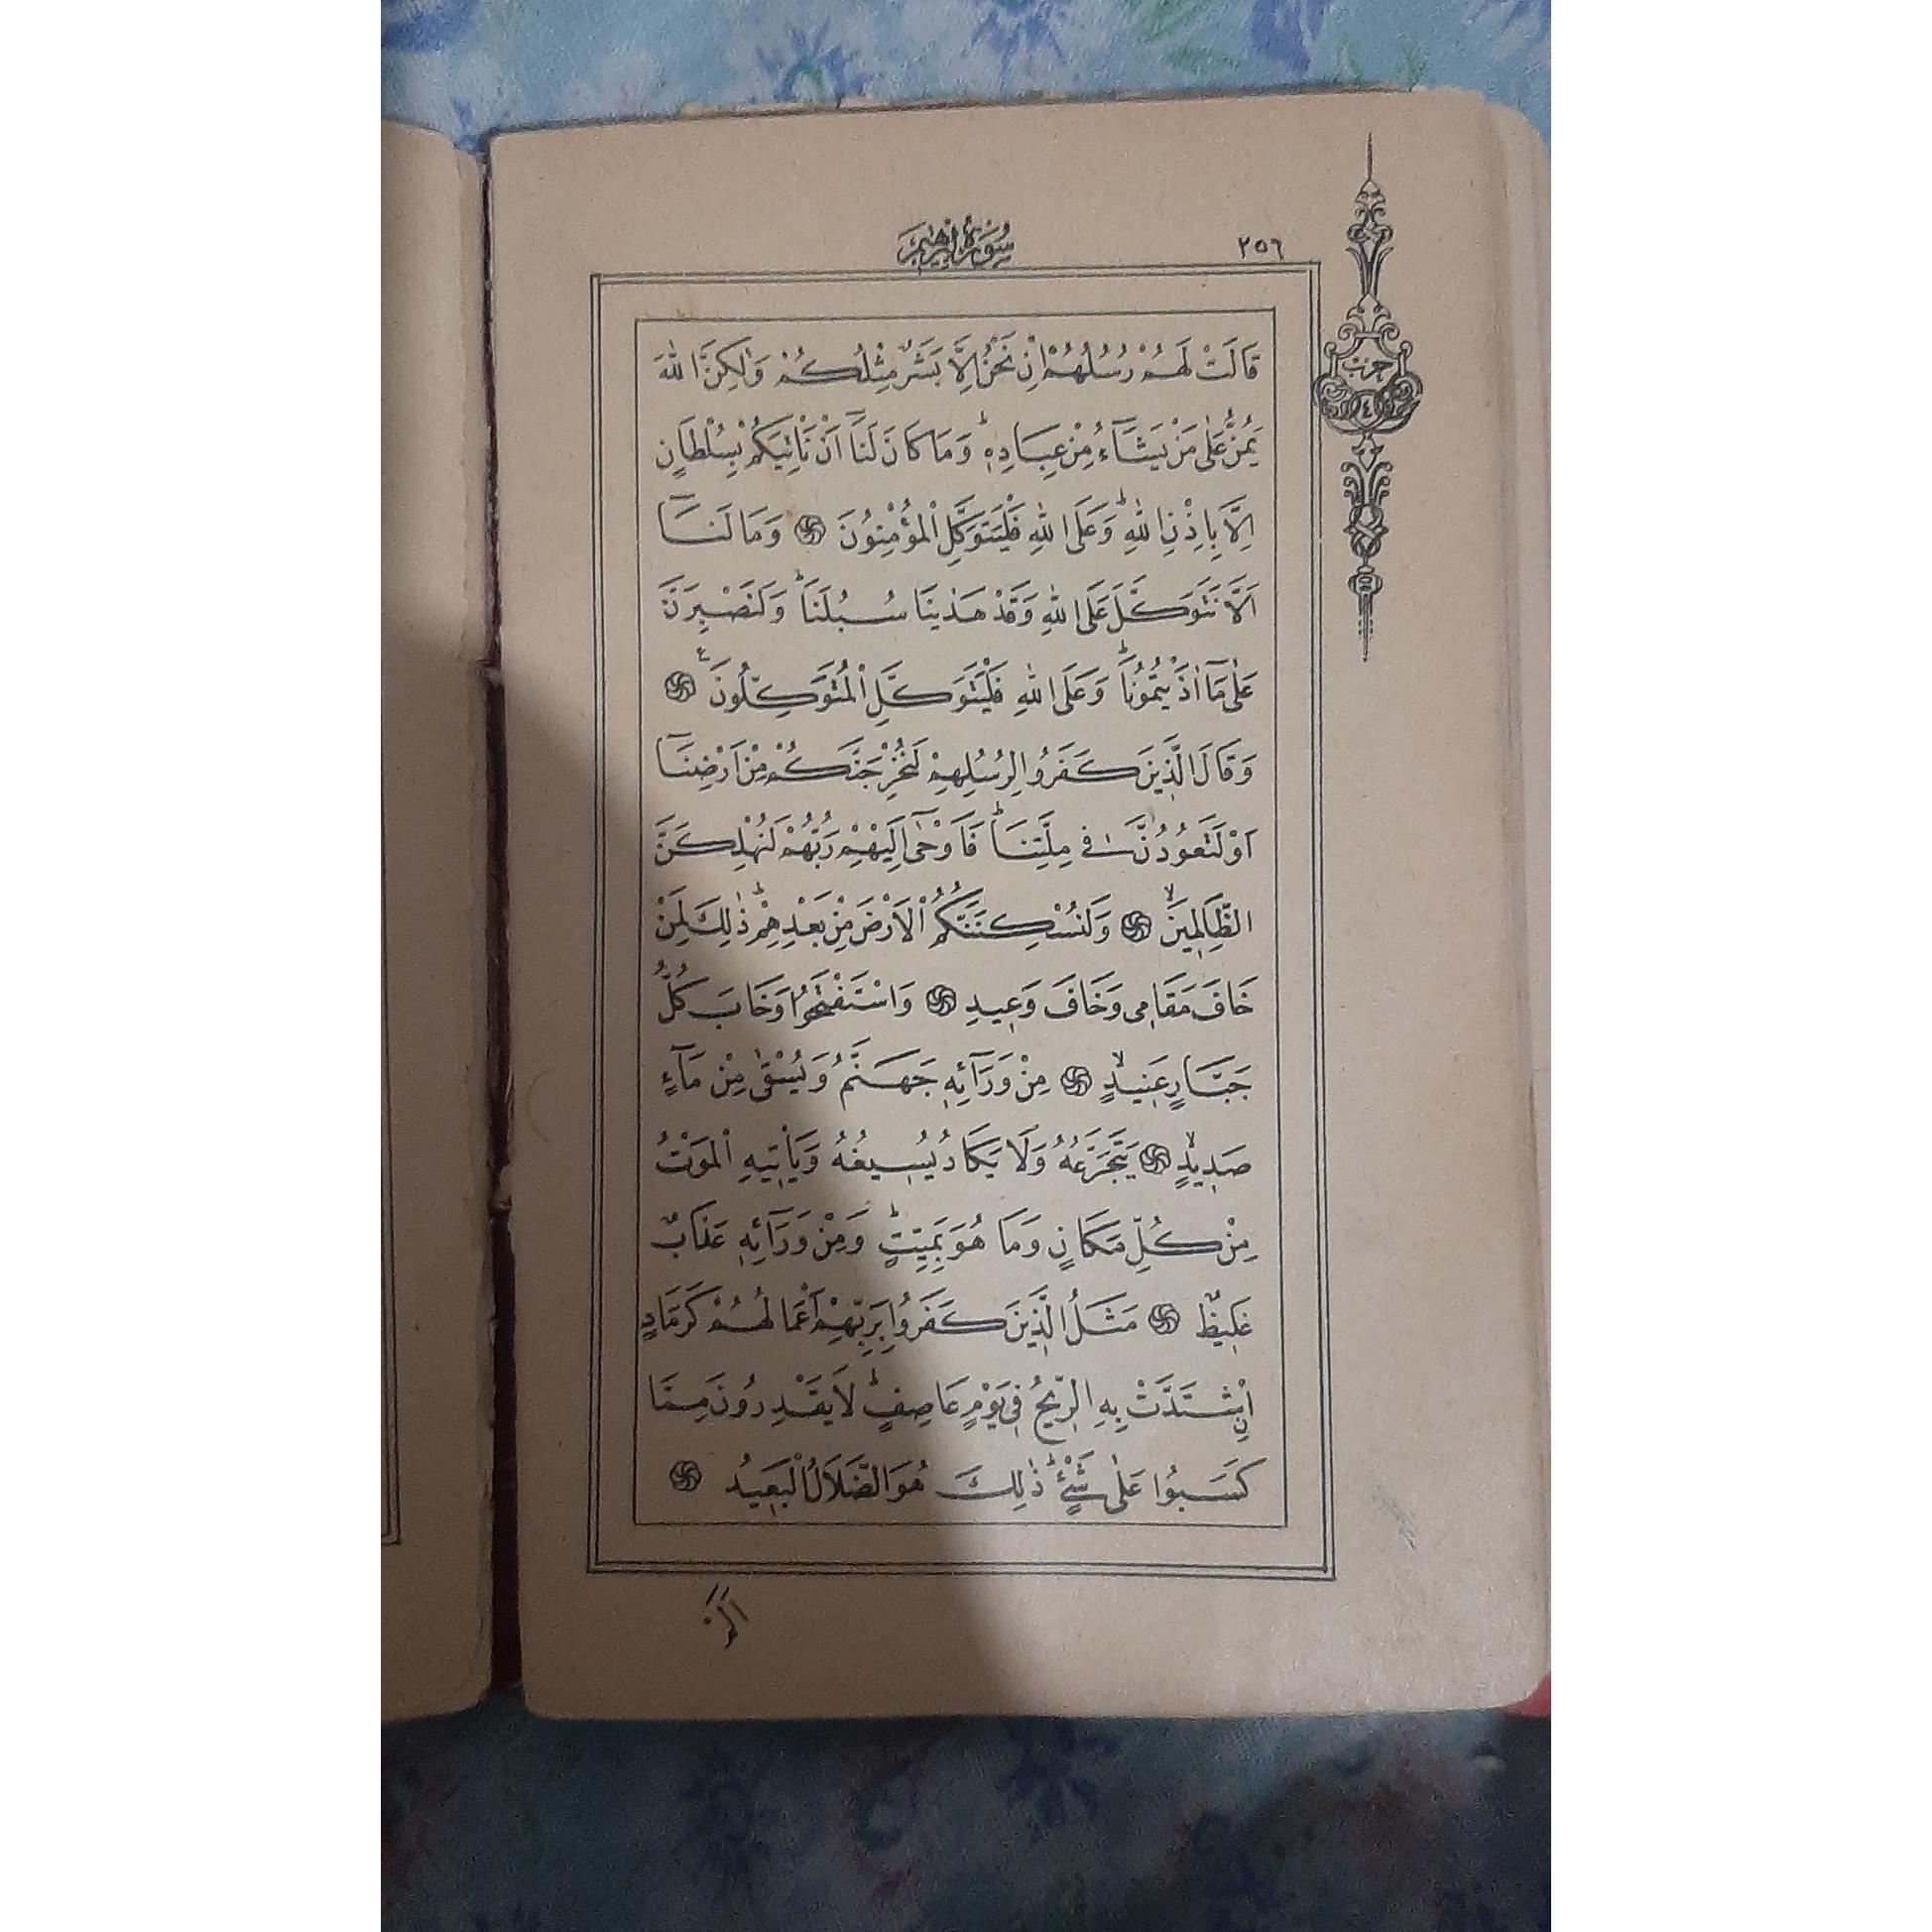 سُورَةُ اِبْرٰهِيمَ
٢٥٦
حزب
٤
قَالَتْ لَهُمْ رُسُلُهُمْ اِنْ نَحْنُ اِلَّا بَشَرٌ مِثْلُكُمْ وَلٰكِنَّ اللّٰهَ
يَمُنُّ عَلٰى مَنْ يَشَٓاءُ مِنْ عِبَادِه۪ۜ وَمَا كَانَ لَنَٓا اَنْ نَأْتِيَكُمْ بِسُلْطَانٍ
اِلَّا بِاِذْنِ اللّٰهِۜ وَعَلَى اللّٰهِ فَلْيَتَوَكَّلِ الْمُؤْمِنُونَ ۝ وَمَا لَنَٓا
اَلَّا نَتَوَكَّلَ عَلَى اللّٰهِ وَقَدْ هَدٰينَا سُبُلَنَاۜ وَلَنَصْبِرَنَّ
عَلٰى مَٓا اٰذَيْتُمُونَاۜ وَعَلَى اللّٰهِ فَلْيَتَوَكَّلِ الْمُتَوَكِّلُونَ۟ ۝
وَقَالَ الَّذ۪ينَ كَفَرُوا لِرُسُلِهِمْ لَنُخْرِجَنَّكُمْ مِنْ اَرْضِنَٓا
اَوْ لَتَعُودُنَّ ف۪ي مِلَّتِنَاۜ فَاَوْحٰٓى اِلَيْهِمْ رَبُّهُمْ لَنُهْلِكَنَّ
الظَّالِم۪ينَۙ ۝ وَلَنُسْكِنَنَّكُمُ الْاَرْضَ مِنْ بَعْدِهِمْۜ ذٰلِكَ لِمَنْ
خَافَ مَقَام۪ي وَخَافَ وَع۪يدِ ۝ وَاسْتَفْتَحُوا وَخَابَ كُلُّ
جَبَّارٍ عَن۪يدٍۙ ۝ مِنْ وَرَٓائِه۪ جَهَنَّمُ وَيُسْقٰى مِنْ مَٓاءٍ
صَد۪يدٍۙ ۝ يَتَجَرَّعُهُ وَلَا يَكَادُ يُس۪يغُهُ وَيَأْت۪يهِ الْمَوْتُ
مِنْ كُلِّ مَكَانٍ وَمَا هُوَ بِمَيِّتٍۜ وَمِنْ وَرَٓائِه۪ عَذَابٌ
غَل۪يظٌ ۝ مَثَلُ الَّذ۪ينَ كَفَرُوا بِرَبِّهِمْ اَعْمَالُهُمْ كَرَمَادٍ
اشْتَدَّتْ بِهِ الرّ۪يحُ ف۪ي يَوْمٍ عَاصِفٍۜ لَا يَقْدِرُونَ مِمَّا
كَسَبُوا عَلٰى شَيْءٍۜ ذٰلِكَ هُوَ الضَّلَالُ الْبَع۪يدُ ۝
اَلَمْ